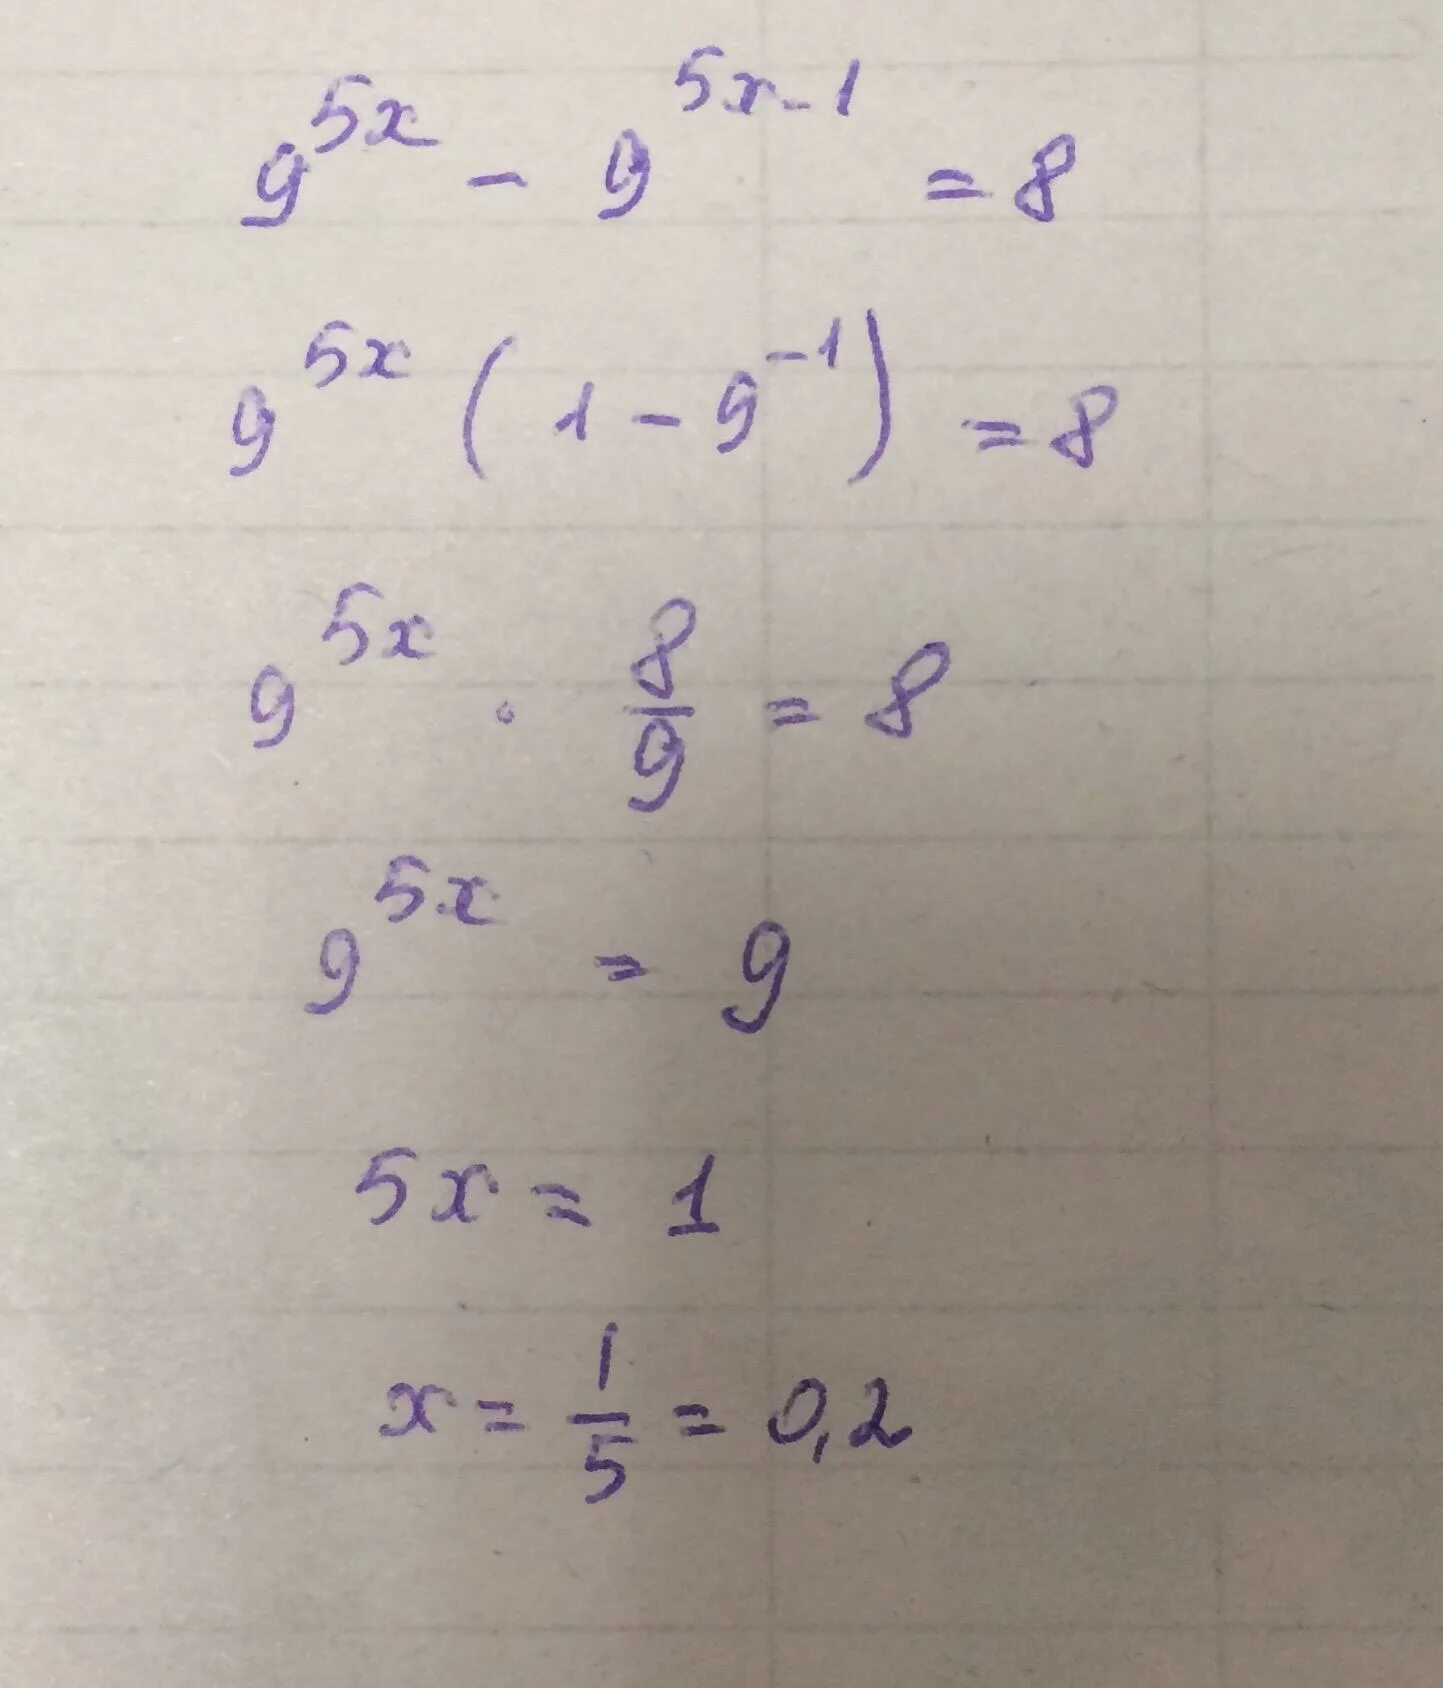 9^{5x} - 9^{5x-1} = 8
9^{5x} (1 - 9^{-1}) = 8
9^{5x} · \frac{8}{9} = 8
9^{5x} = 9
5x = 1
x = \frac{1}{5} = 0,2